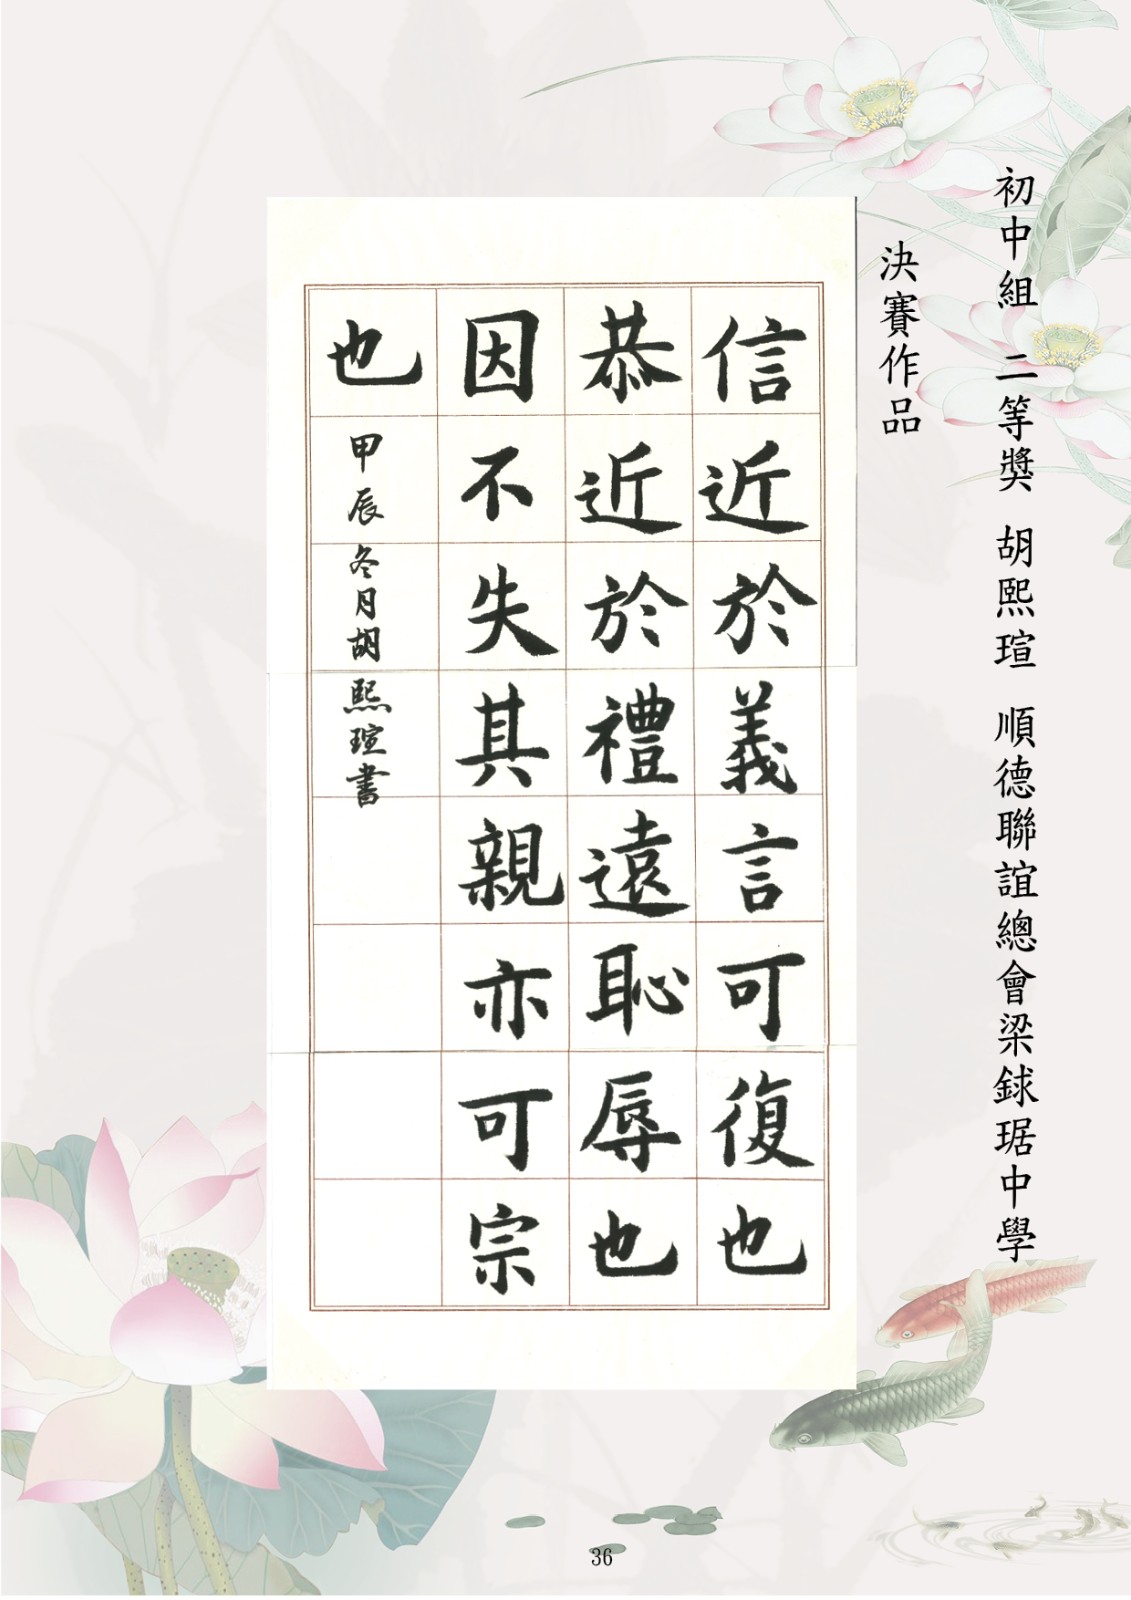 初中組 二等獎 胡熙瑄 順德聯誼總會梁銶琚中學
決賽作品
信近於義言可復也
恭近於禮遠恥辱也
因不失其親亦可宗
也
甲辰冬月胡熙瑄書
36